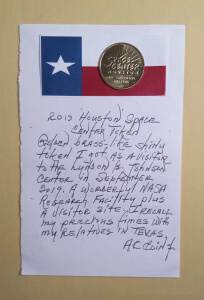 SPACE
CENTER
HOUSTON
2019 "HOUSTON" SPACE
CENTER TOKEN
GOLDEN BRASS-LIKE SHINY
TOKEN I GOT AS A VISITOR
TO THE LYNDON B. JOHNSON
CENTER IN SEPTEMBER
2019. A WONDERFUL NASA
RESEARCH FACILITY PLUS
A VISITOR SITE. I RECALL
MY PRECIOUS TIMES WITH
MY RELATIVES IN TEXAS.